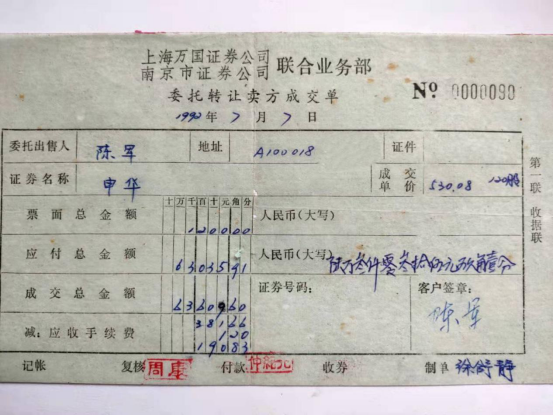 上海万国证券公司
南京市证券公司 联合业务部
委托转让卖方成交单 № 0000090
1992年7月7日
委托出售人 陈军 地址 A100018 证件
证券名称 申华 成交单价 530.08 120股
十万千百十元角分
票面总金额 120000 人民币(大写)
应付总金额 6303591 人民币(大写) 陆万叁仟零叁拾伍元玖角壹分
成交总金额 6360960 证券号码: 客户签章:
陈军
减:应收手续费 38166
120
19083
第一联 收据联
记帐 复核 周 付款 收券 制单 徐舒静